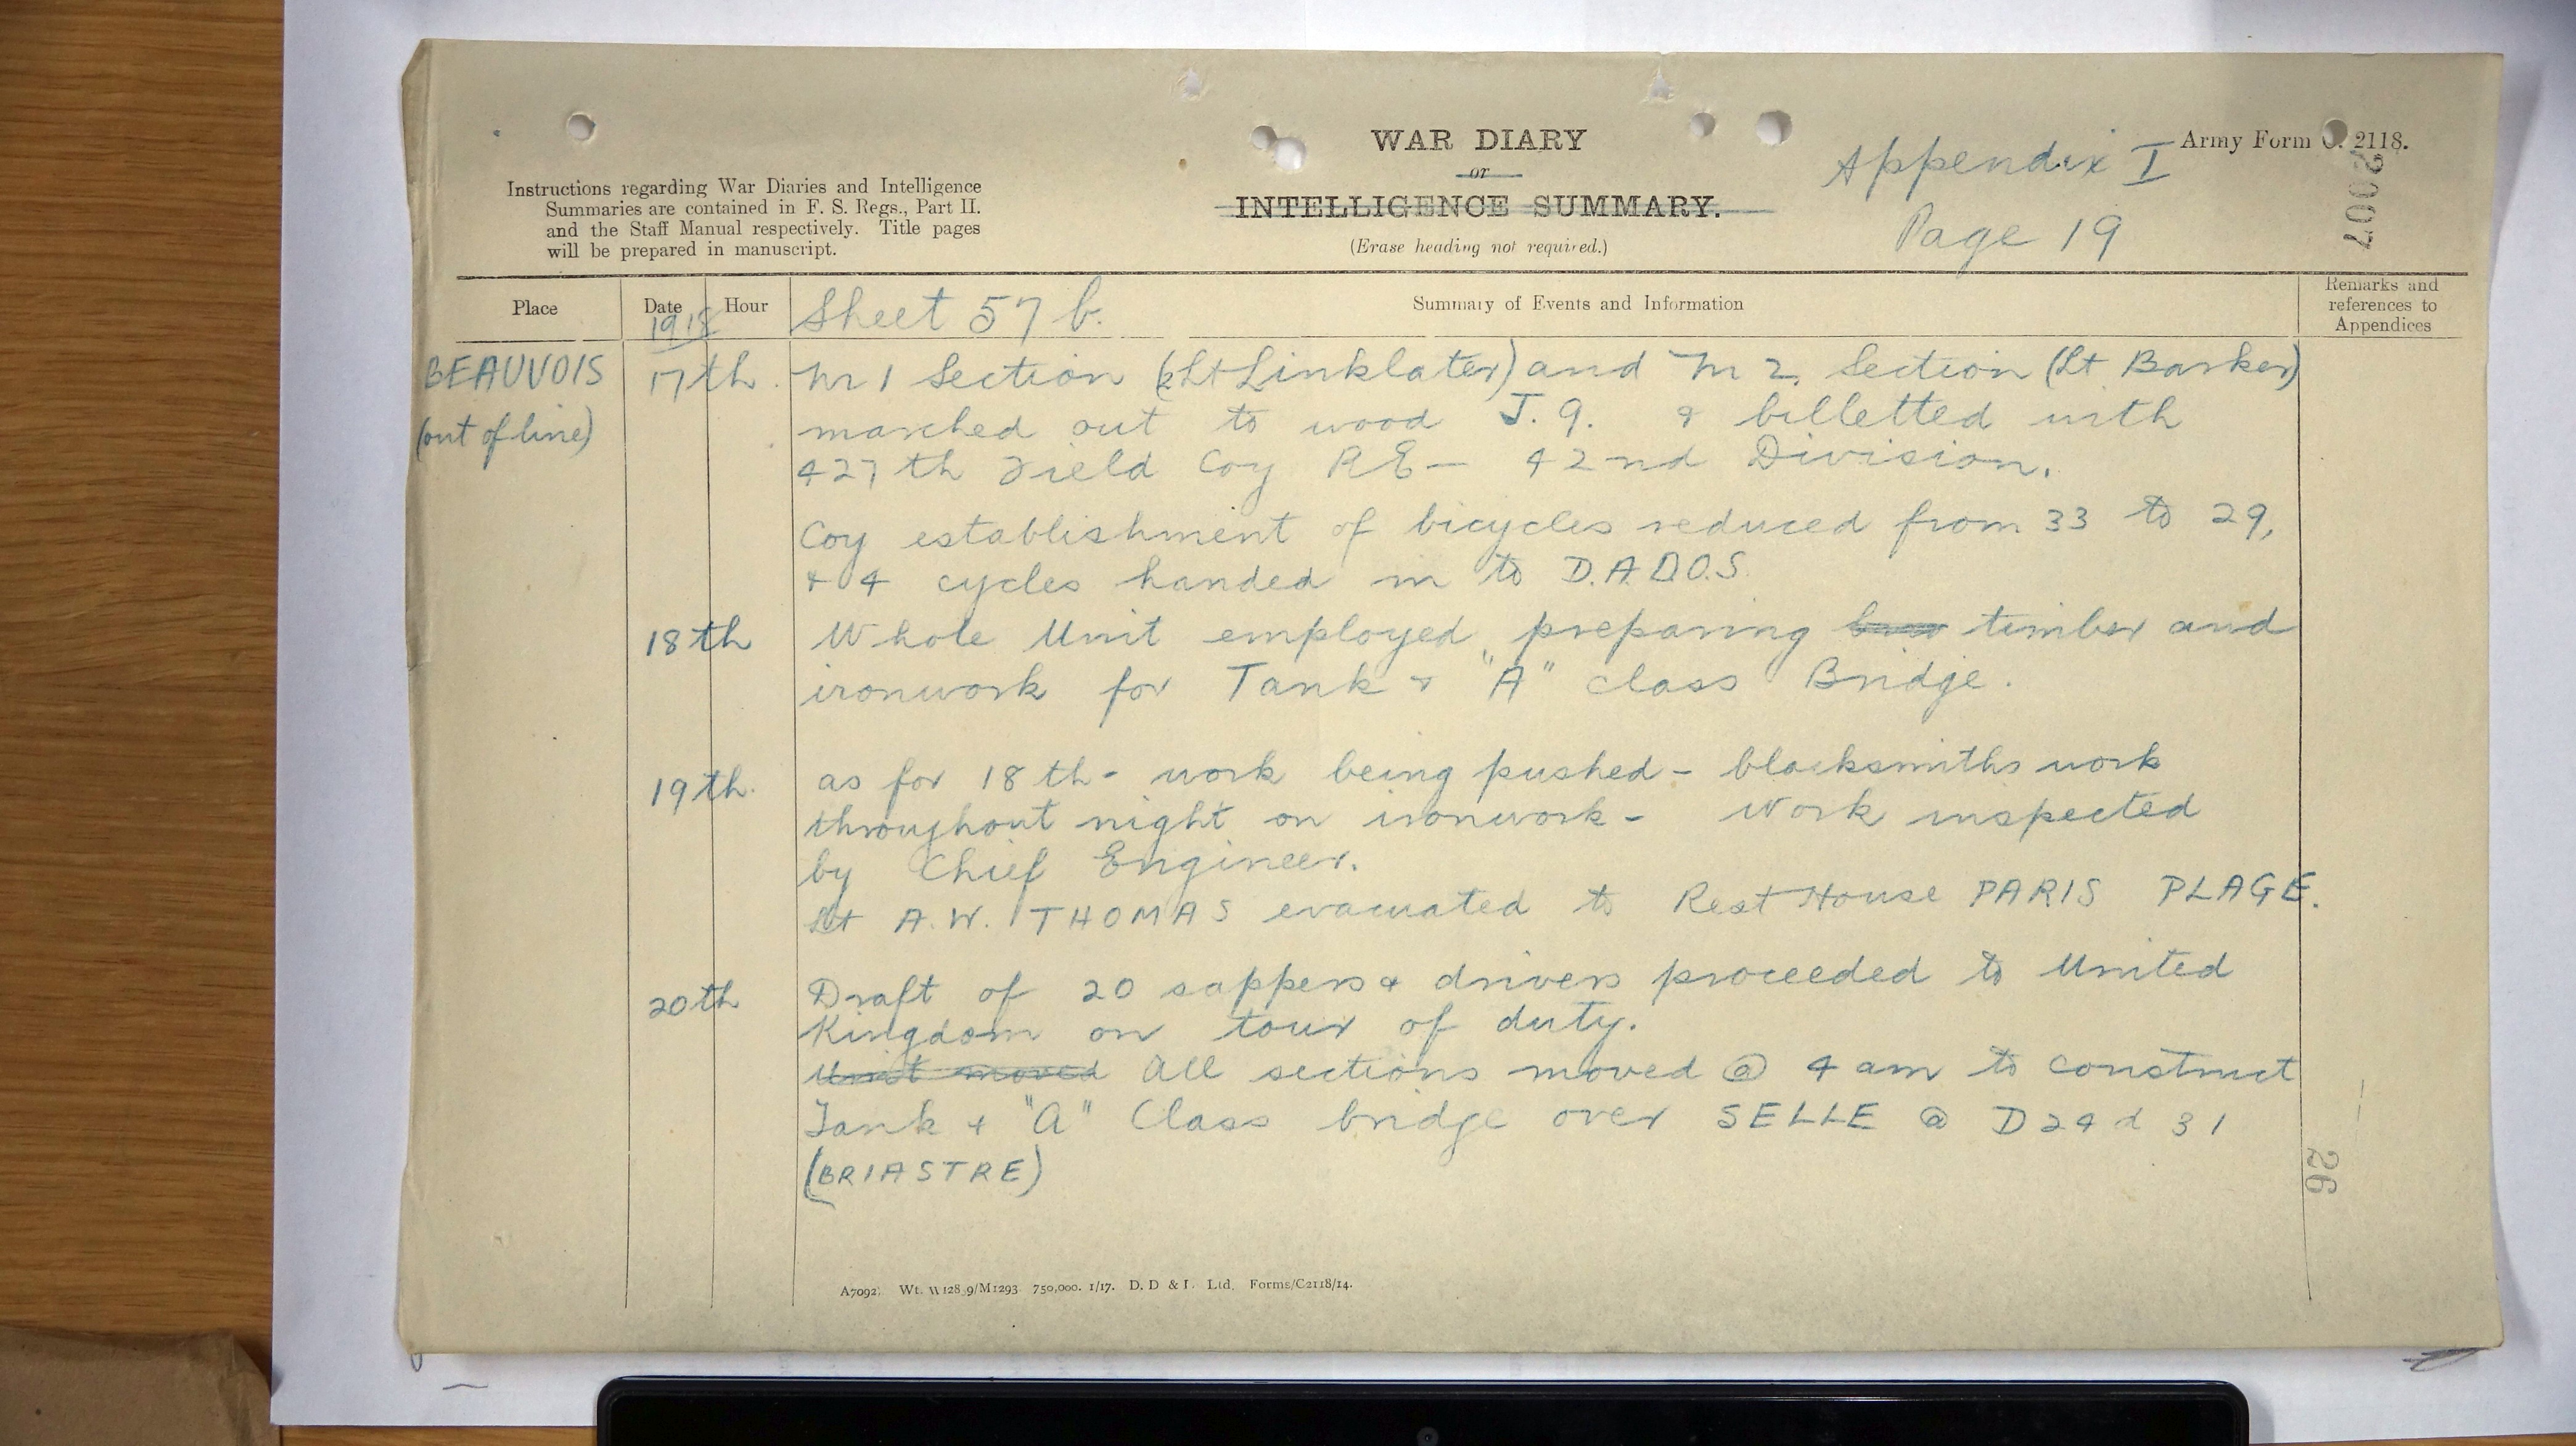 WAR DIARY
or
INTELLIGENCE SUMMARY.
(Erase heading not required.)
Instructions regarding War Diaries and Intelligence
Summaries are contained in F. S. Regs., Part II.
and the Staff Manual respectively. Title pages
will be prepared in manuscript.
Appendix I
Page 19
Army Form C. 2118.
2007
Place
Date
1918
Hour
Sheet 57 b.
Summary of Events and Information
Remarks and
references to
Appendices
BEAUVOIS
(out of line)
17th.
Nr 1 Section (2Lt Linklater) and Nr 2 Section (Lt Barker)
marched out to wood J. 9. & billetted with
427th Field Coy RE - 42nd Division.
Coy establishment of bicycles reduced from 33 to 29,
& 4 cycles handed in to D.A.D.O.S.
18th
Whole Unit employed preparing timber and
ironwork for Tank & "A" class Bridge.
19th.
as for 18th - work being pushed - blacksmiths work
throughout night on ironwork - Work inspected
by Chief Engineer.
Lt A.W. THOMAS evacuated to Rest House PARIS PLAGE.
20th
Draft of 20 sappers & drivers proceeded to United
Kingdom on tour of duty.
Unit moved All sections moved @ 4 am to construct
Tank & "A" Class bridge over SELLE @ D 24 d 31
(BRIASTRE)
26
A7092. Wt. W128 9/M1293 750,000. 1/17. D. D & L. Ltd. Forms/C2118/14.